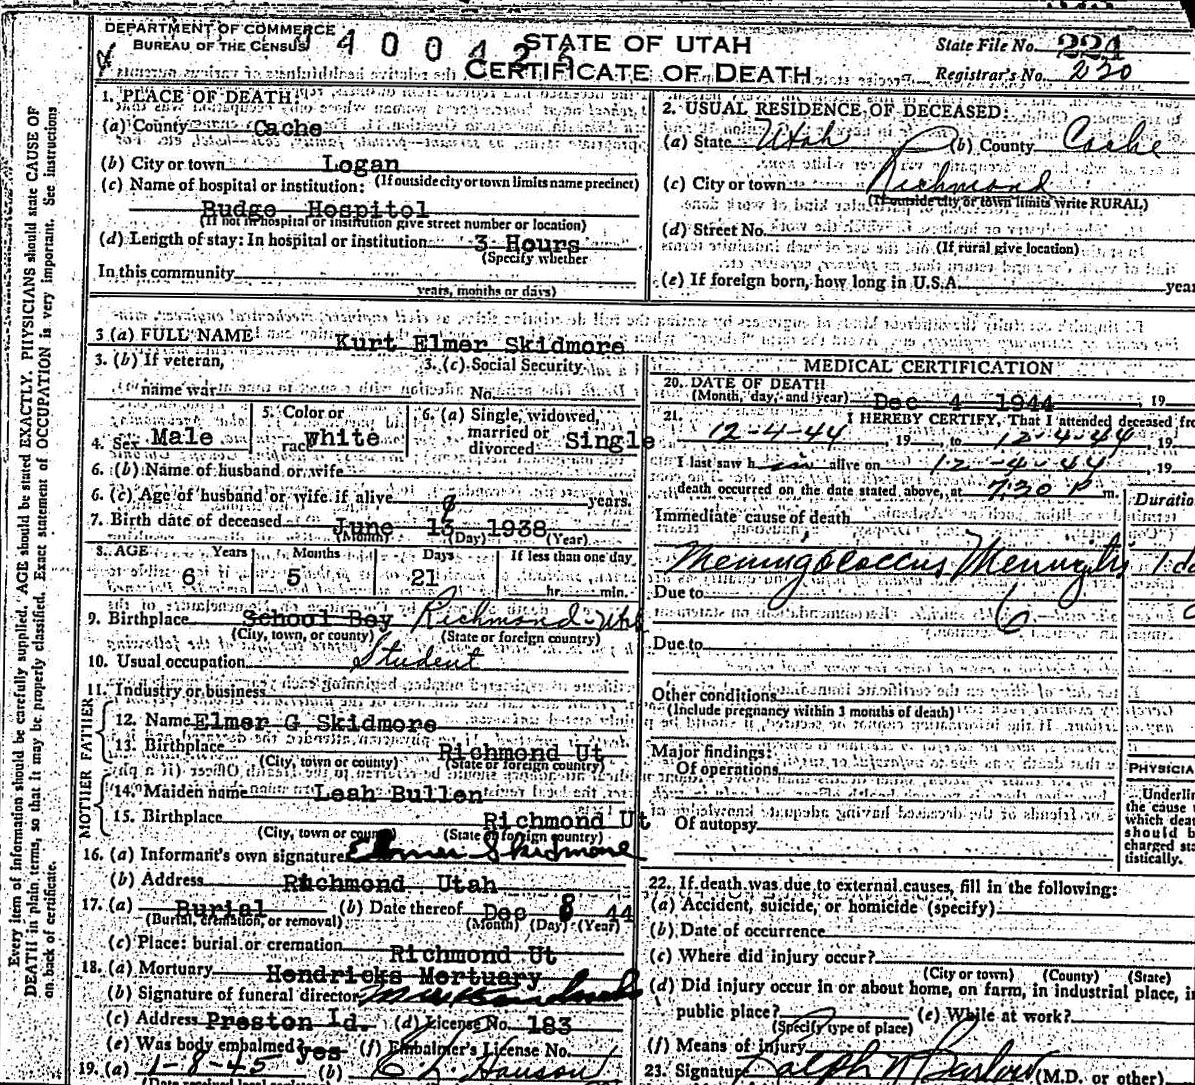 DEPARTMENT OF COMMERCE
BUREAU OF THE CENSUS
STATE OF UTAH
CERTIFICATE OF DEATH
State File No. 224
Registrar's No. 230
Every item of information should be carefully supplied. AGE should be stated EXACTLY. PHYSICIANS should state CAUSE OF
DEATH in plain, terms, so that it may be properly classified. Exact statement of OCCUPATION is very important. See instructions
on back of certificate.
1. PLACE OF DEATH:
(a) County Cache
(b) City or town Logan
(c) Name of hospital or institution: (If outside city or town limits name precinct)
Budge Hospitol
(If not in hospital or institution give street number or location)
(d) Length of stay: In hospital or institution 3 Hours
(Specify whether
In this community
years, months or days)
2. USUAL RESIDENCE OF DECEASED:
(a) State Utah (b) County Cache
(c) City or town Richmond
(If outside city or town limits write RURAL)
(d) Street No.
(If rural give location)
(e) If foreign born, how long in U.S.A. year
3 (a) FULL NAME Kurt Elmer Skidmore
3. (b) If veteran, 3. (c) Social Security
name war No.
4. Sex Male 5. Color or race white 6. (a) Single, widowed, married or divorced Single
6. (b) Name of husband or wife
6. (c) Age of husband or wife if alive years.
7. Birth date of deceased June 13 1938
(Month) (Day) (Year)
8. AGE Years Months Days If less than one day
6 5 21 hr. min.
9. Birthplace School Boy Richmond-Utah
(City, town, or county) (State or foreign country)
10. Usual occupation Student
11. Industry or business
FATHER
12. Name Elmer G Skidmore
13. Birthplace Richmond Ut
(City, town or county) (State or foreign country)
MOTHER
14. Maiden name Leah Bullen
15. Birthplace Richmond Ut
(City, town or county) (State or foreign country)
16. (a) Informant's own signature Elmer Skidmore
(b) Address Richmond Utah
17. (a) Burial (b) Date thereof Dec 8 44
(Burial, cremation, or removal) (Month) (Day) (Year)
(c) Place: burial or cremation Richmond Ut
18. (a) Mortuary Hendricks Mortuary
(b) Signature of funeral director
(c) Address Preston Id. (d) License No. 183
(e) Was body embalmed? yes (f) Embalmer's License No.
19. (a) 1-8-45 (b) Hanson
(Date received local
MEDICAL CERTIFICATION
20. DATE OF DEATH
(Month, day, and year) Dec 4 1944, 19
21. I HEREBY CERTIFY, That I attended deceased fro
12-4-44, 19, to 12-4-44 19
I last saw him alive on 12-4-44, 19
death occurred on the date stated above, at 7:30 P m.
Immediate cause of death Duratio
Meningococcus Meningitis 1 da
Due to
6
Due to
Other conditions
(Include pregnancy within 3 months of death)
Major findings:
Of operations
Of autopsy
PHYSICIA
Underlin
the cause t
which deat
should b
charged sta
tistically.
22. If death was due to external causes, fill in the following:
(a) Accident, suicide, or homicide (specify)
(b) Date of occurrence
(c) Where did injury occur?
(City or town) (County) (State)
(d) Did injury occur in or about home, on farm, in industrial place, in
public place? (e) While at work?
(Specify type of place)
(f) Means of injury
23. Signature Ralph N Barlow (M.D. or other)